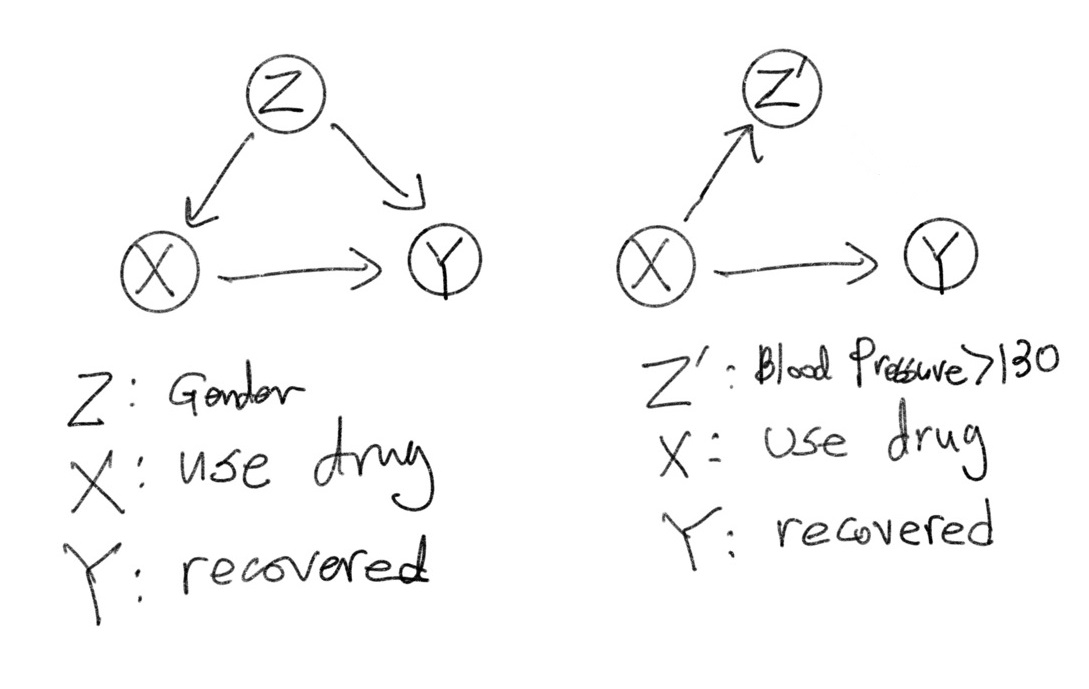 Z
X
Y
Z: Gender
X: use drug
Y: recovered
Z'
X
Y
Z': Blood Pressure>130
X: use drug
Y: recovered